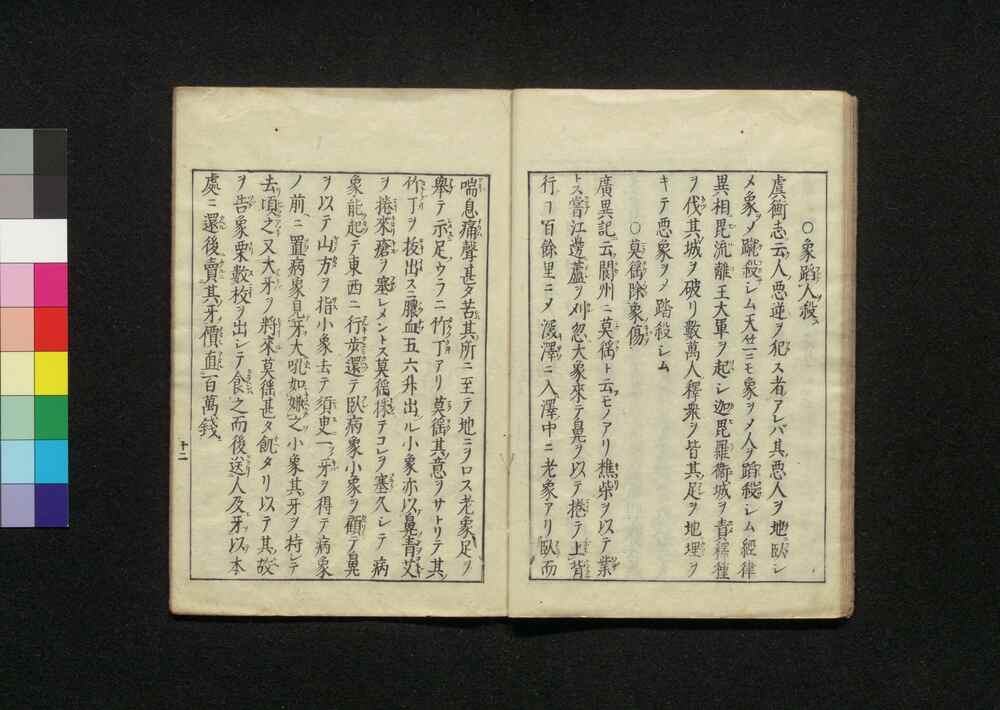 ○象蹈人殺
虞衡志云人悪逆ヲ犯ス者アレバ其悪人ヲ地ニ臥シ
メ象ヲメ蹴殺レム天竺ニモ象ヲメ人ヲ蹈殺レム經律
異相毘流離王大軍ヲ起シ迦毘羅衛城ヲ責釋種
ヲ伐其城ヲ破リ數萬人釋衆ヲ皆其足ヲ地ニ埋ヲ
キテ悪象ヲメ踏殺レム
○莫徭除象傷
廣異記云閬州ニ莫徭ト云モノアリ樵柴ヲ以テ業
トス嘗江邊蘆ヲ刈忽大象來テ鼻ヲ以テ捲テ上背
行コ百餘里ニメ深澤ニ入澤中ニ老象アリ臥而
喘息痛聲甚タ苦其所ニ至テ地ニヲロス老象足ヲ
舉テ示足ウラニ竹丁アリ莫徭其意ヲサトリテ其
竹丁ヲ抜出スニ膿血五六升出ル小象亦以鼻青艾
ヲ捲來瘡ヲ塞レメントス莫徭採テコレヲ塞久レテ病
象能起テ東西ニ行歩還テ臥病象小象ヲ顧テ鼻
ヲ以テ山方ヲ指小象去テ須臾一ノ牙ヲ得テ病象
ノ前ニ置病象見牙大吼如嫌之小象其牙ヲ持レテ
去頃之又大牙ヲ將來莫徭甚タ飢タリ以テ其故
ヲ告象栗數枚ヲ出レテ食之而後送人及牙以本
處ニ還後賣其牙價直百萬錢
十二